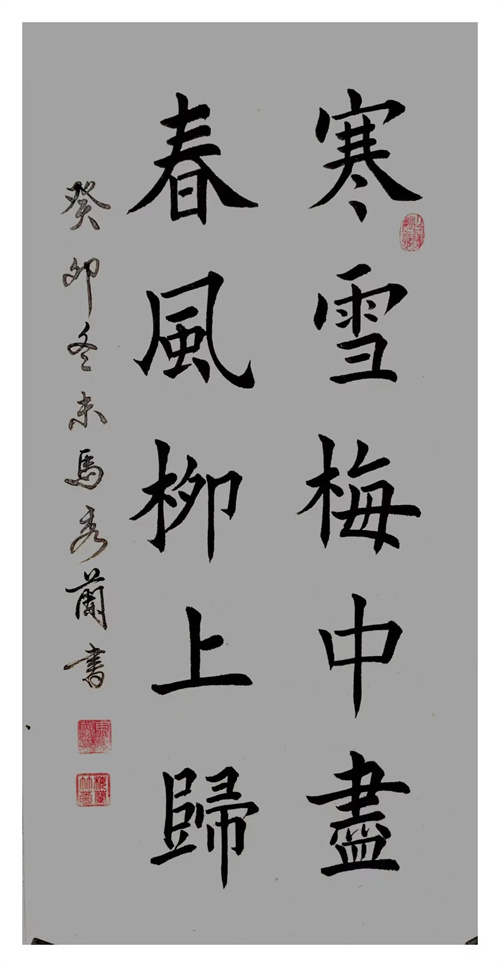 寒雪梅中盡
春風柳上歸
癸卯冬末馬秀蘭書